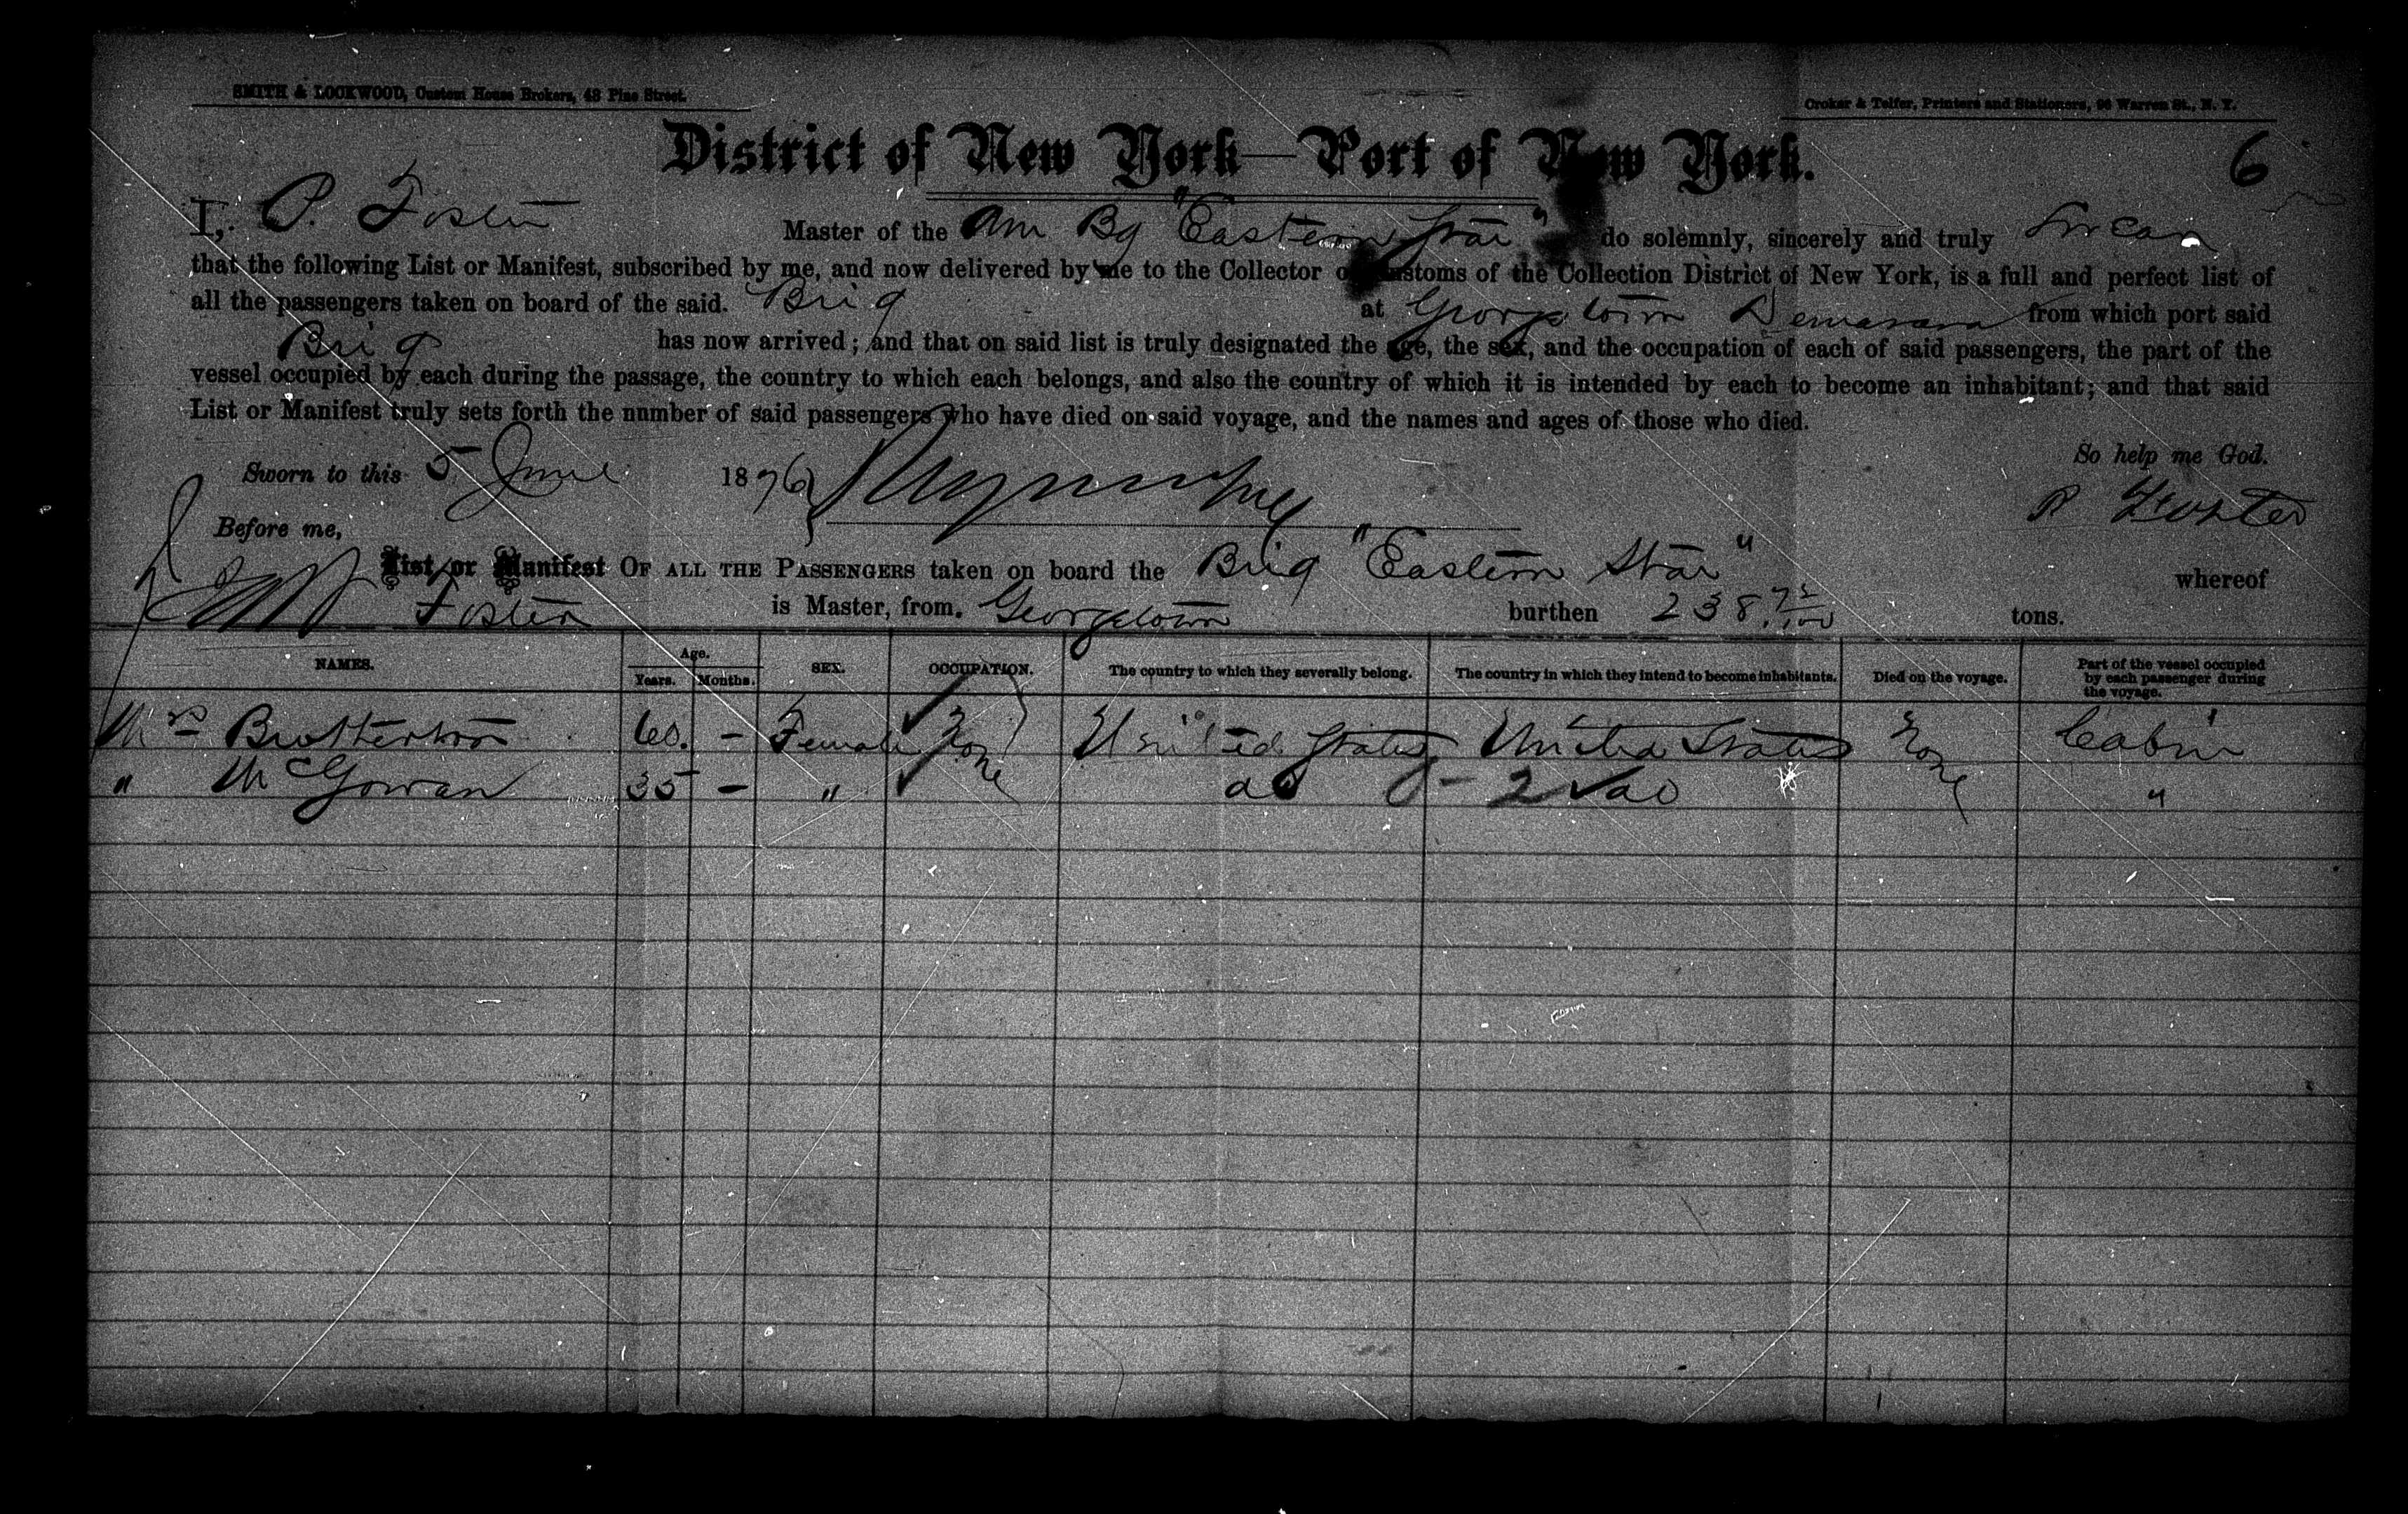 SMITH & LOCKWOOD, Custom House Brokers, 48 Pine Street.
Croker & Telfer, Printers and Stationers, 96 Warren St., N. Y.
District of New York—Port of New York.
6
I, P. Foster Master of the Am Bg "Eastern Star" do solemnly, sincerely and truly Swear
that the following List or Manifest, subscribed by me, and now delivered by me to the Collector of Customs of the Collection District of New York, is a full and perfect list of
all the passengers taken on board of the said. Brig at Georgetown Demarara from which port said
Brig has now arrived; and that on said list is truly designated the age, the sex, and the occupation of each of said passengers, the part of the
vessel occupied by each during the passage, the country to which each belongs, and also the country of which it is intended by each to become an inhabitant; and that said
List or Manifest truly sets forth the nnmber of said passengers who have died on said voyage, and the names and ages of those who died.
So help me God.
Sworn to this 5 June 1876
P Foster
Before me,
List or Manifest OF ALL THE PASSENGERS taken on board the Brig "Eastern Star" whereof
Foster is Master, from. Georgetown burthen 238 72/100 tons.
NAMES. Age. Years. Months. SEX. OCCUPATION. The country to which they severally belong. The country in which they intend to become inhabitants. Died on the voyage. Part of the vessel occupied by each passenger during the voyage.
Mrs 60. - Female None United States United States None Cabin
" McGowan 35 - " do 2 do "